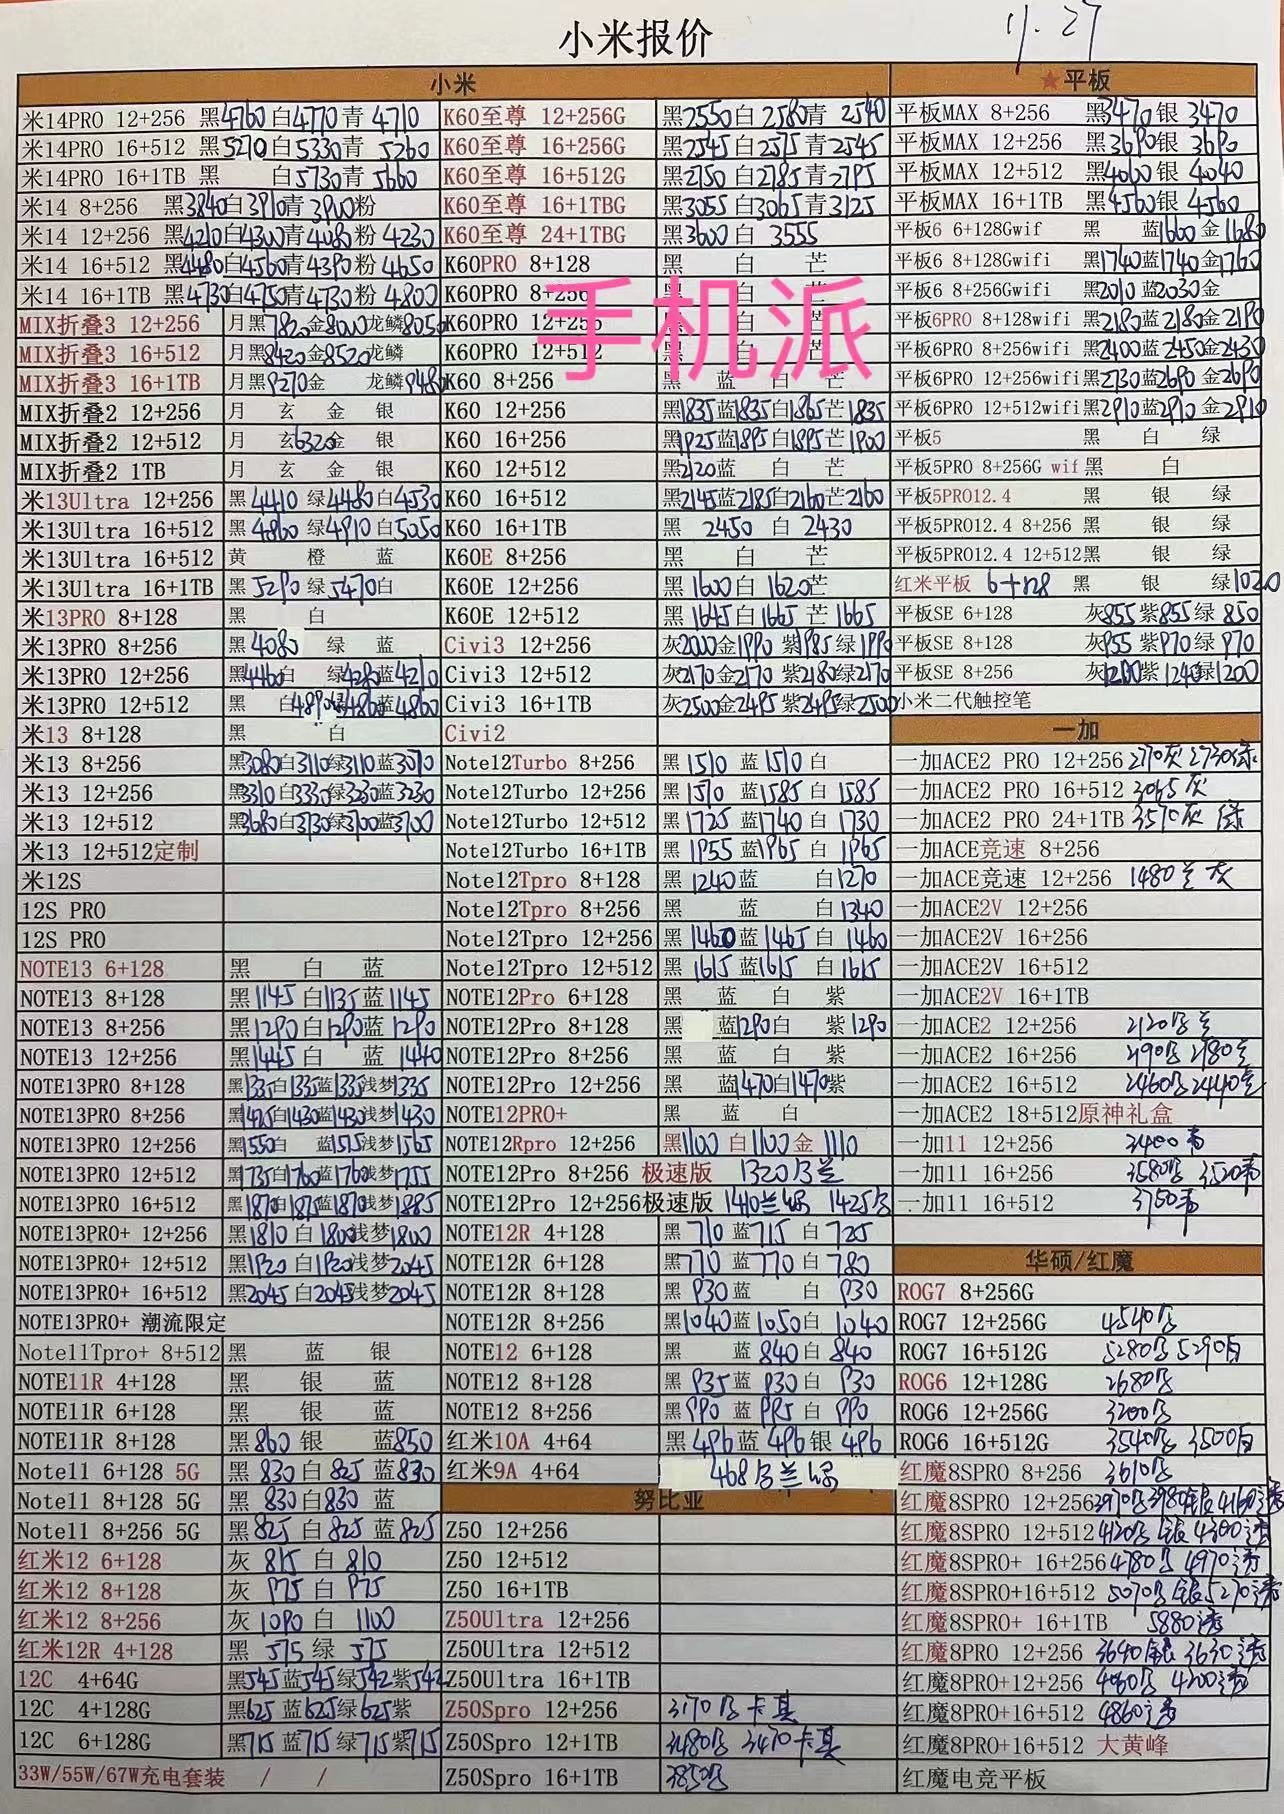 小米报价 11.27
小米
米14PRO 12+256 黑4760白4770青 4710
米14PRO 16+512 黑5270白5330青 5260
米14PRO 16+1TB 黑 白5730青 5660
米14 8+256 黑3840白3910青3900粉
米14 12+256 黑4210白4300青4080粉 4230
米14 16+512 黑4480白4560青4390粉 4650
米14 16+1TB 黑4730白4750青4730粉 4800
MIX折叠3 12+256 月黑7820金8000龙鳞8050
MIX折叠3 16+512 月黑8420金8520龙鳞
MIX折叠3 16+1TB 月黑9270金 龙鳞9480
MIX折叠2 12+256 月 玄 金 银
MIX折叠2 12+512 月 玄6320金 银
MIX折叠2 1TB 月 玄 金 银
米13Ultra 12+256 黑4410 绿4480白4530
米13Ultra 16+512 黑4860 绿4910白5050
米13Ultra 16+512 黄 橙 蓝
米13Ultra 16+1TB 黑5290绿5470白
米13PRO 8+128 黑 白
米13PRO 8+256 黑4080 绿 蓝
米13PRO 12+256 黑4460白 绿4280蓝4210
米13PRO 12+512 黑 白4890绿4860蓝4860
米13 8+128 黑 白
米13 8+256 黑3080白3110绿3110蓝3070
米13 12+256 黑3310白3330绿3230蓝3230
米13 12+512 黑3680白3730绿3700蓝3700
米13 12+512定制
米12S
12S PRO
12S PRO
NOTE13 6+128 黑 白 蓝
NOTE13 8+128 黑1145白1135蓝1145
NOTE13 8+256 黑1290白1290蓝1290
NOTE13 12+256 黑1445白 蓝1440
NOTE13PRO 8+128 黑1335白1335蓝1335浅梦1335
NOTE13PRO 8+256 黑1425白1430蓝1430浅梦1430
NOTE13PRO 12+256 黑1550白 蓝1515浅梦1565
NOTE13PRO 12+512 黑1735白1760蓝1760浅梦1755
NOTE13PRO 16+512 黑1870白1875蓝1870浅梦1885
NOTE13PRO+ 12+256 黑1810白1800浅梦1800
NOTE13PRO+ 12+512 黑1920白1920浅梦2045
NOTE13PRO+ 16+512 黑2045白2045浅梦2045
NOTE13PRO+ 潮流限定
Note11Tpro+ 8+512 黑 蓝 银
NOTE11R 4+128 黑 银 蓝
NOTE11R 6+128 黑 银 蓝
NOTE11R 8+128 黑860 银 蓝850
Note11 6+128 5G 黑830白825蓝830
Note11 8+128 5G 黑830白830蓝
Note11 8+256 5G 黑825白825蓝825
红米12 6+128 灰815白810
红米12 8+128 灰975白975
红米12 8+256 灰1090白1100
红米12R 4+128 黑575绿575
12C 4+64G 黑545蓝545绿542紫542
12C 4+128G 黑625蓝625绿625紫
12C 6+128G 黑715蓝715绿715紫715
33W/55W/67W充电套装 / /
K60至尊 12+256G 黑2550白2580青2540
K60至尊 16+256G 黑2545白2575青2545
K60至尊 16+512G 黑2750白2785青2795
K60至尊 16+1TBG 黑3055白3065青3125
K60至尊 24+1TBG 黑3600白 3555
K60PRO 8+128 黑 白 芒
K60PRO 8+256 黑 白 芒
手机派
K60PRO 12+256 黑 白 芒
K60PRO 12+512 黑 白 芒
K60 8+256 黑 蓝 白 芒
K60 12+256 黑1835蓝1835白1865芒1835
K60 16+256 黑1925蓝1895白1895芒1900
K60 12+512 黑2120蓝 白 芒
K60 16+512 黑2145蓝2185白2160芒2160
K60 16+1TB 黑 2450 白 2430
K60E 8+256 黑 白 芒
K60E 12+256 黑1600白1620芒
K60E 12+512 黑1645白1665芒1665
Civi3 12+256 灰2000金1990紫1985绿1990
Civi3 12+512 灰2170金2170紫2180绿2170
Civi3 16+1TB 灰2500金2495紫2495绿2500
Civi2
Note12Turbo 8+256 黑1510蓝1510白
Note12Turbo 12+256 黑1570蓝1585白1585
Note12Turbo 12+512 黑1725蓝1740白1730
Note12Turbo 16+1TB 黑1955蓝1965白1965
Note12Tpro 8+128 黑1240蓝 白1270
Note12Tpro 8+256 黑 蓝 白1340
Note12Tpro 12+256 黑1460蓝1465白1460
Note12Tpro 12+512 黑1615蓝1615白1615
NOTE12Pro 6+128 黑 蓝 白 紫
NOTE12Pro 8+128 黑 蓝1290白 紫1290
NOTE12Pro 8+256 黑 蓝 白 紫
NOTE12Pro 12+256 黑 蓝1470白1470紫
NOTE12PRO+ 黑 蓝 白
NOTE12Rpro 12+256 黑1100白1100金1110
NOTE12Pro 8+256 极速版 1320白兰
NOTE12Pro 12+256极速版 1410兰绿 1425白
NOTE12R 4+128 黑710蓝715白725
NOTE12R 6+128 黑770蓝770白780
NOTE12R 8+128 黑930蓝 白930
NOTE12R 8+256 黑1040蓝1050白1040
NOTE12 6+128 黑 蓝840白840
NOTE12 8+128 黑935蓝930白930
NOTE12 8+256 黑990蓝995白990
红米10A 4+64 黑496蓝496银496
红米9A 4+64 468白兰绿
努比亚
Z50 12+256
Z50 12+512
Z50 16+1TB
Z50Ultra 12+256
Z50Ultra 12+512
Z50Ultra 16+1TB
Z50Spro 12+256 3170黑 卡其
Z50Spro 12+1TB 3480黑 3470卡其
Z50Spro 16+1TB 3850黑
★平板
平板MAX 8+256 黑3470银3470
平板MAX 12+256 黑3690银3690
平板MAX 12+512 黑4060银4040
平板MAX 16+1TB 黑4560银4560
平板6 6+128Gwif 黑 蓝1600金1680
平板6 8+128Gwifi 黑1740蓝1740金1760
平板6 8+256Gwifi 黑2010蓝2030金
平板6PRO 8+128wifi 黑2180蓝2180金2190
平板6PRO 8+256wifi 黑2400蓝2450金2430
平板6PRO 12+256wifi黑2730蓝2690金2690
平板6PRO 12+512wifi黑2910蓝2910金2910
平板5 黑 白 绿
平板5PRO 8+256G wif黑 白
平板5PRO12.4 黑 银 绿
平板5PRO12.4 8+256 黑 银 绿
平板5PRO12.4 12+512黑 银 绿
红米平板 6+128 黑 银 绿1020
平板SE 6+128 灰855紫855绿850
平板SE 8+128 灰955紫970绿970
平板SE 8+256 灰1200紫1240绿1200
小米二代触控笔
一加
一加ACE2 PRO 12+256 2770灰2730绿
一加ACE2 PRO 16+512 3065灰
一加ACE2 PRO 24+1TB 3570灰 绿
一加ACE竞速 8+256
一加ACE竞速 12+256 1480兰灰
一加ACE2V 12+256
一加ACE2V 16+256
一加ACE2V 16+512
一加ACE2V 16+1TB
一加ACE2 12+256 2120黑兰
一加ACE2 16+256 2180兰
一加ACE2 16+512 2460黑2440兰
一加ACE2 18+512原神礼盒
一加11 12+256 3400青
一加11 16+256 3580黑 3520青
一加11 16+512 3750青
华硕/红魔
ROG7 8+256G
ROG7 12+256G 4540黑
ROG7 16+512G 5280黑 5290白
ROG6 12+128G 2680黑
ROG6 12+256G 3200黑
ROG6 16+512G 3540黑 3500白
红魔8SPRO 8+256 3610黑
红魔8SPRO 12+256 3970黑3980银4160透
红魔8SPRO 12+512 4120黑 银4300透
红魔8SPRO+ 16+256 4780黑 4970透
红魔8SPRO+16+512 5070黑 银5270透
红魔8SPRO+ 16+1TB 5880透
红魔8PRO 12+256 3640银 3630透
红魔8PRO+12+256 4060黑 4200透
红魔8PRO+16+512 4860透
红魔8PRO+16+512 大黄峰
红魔电竞平板